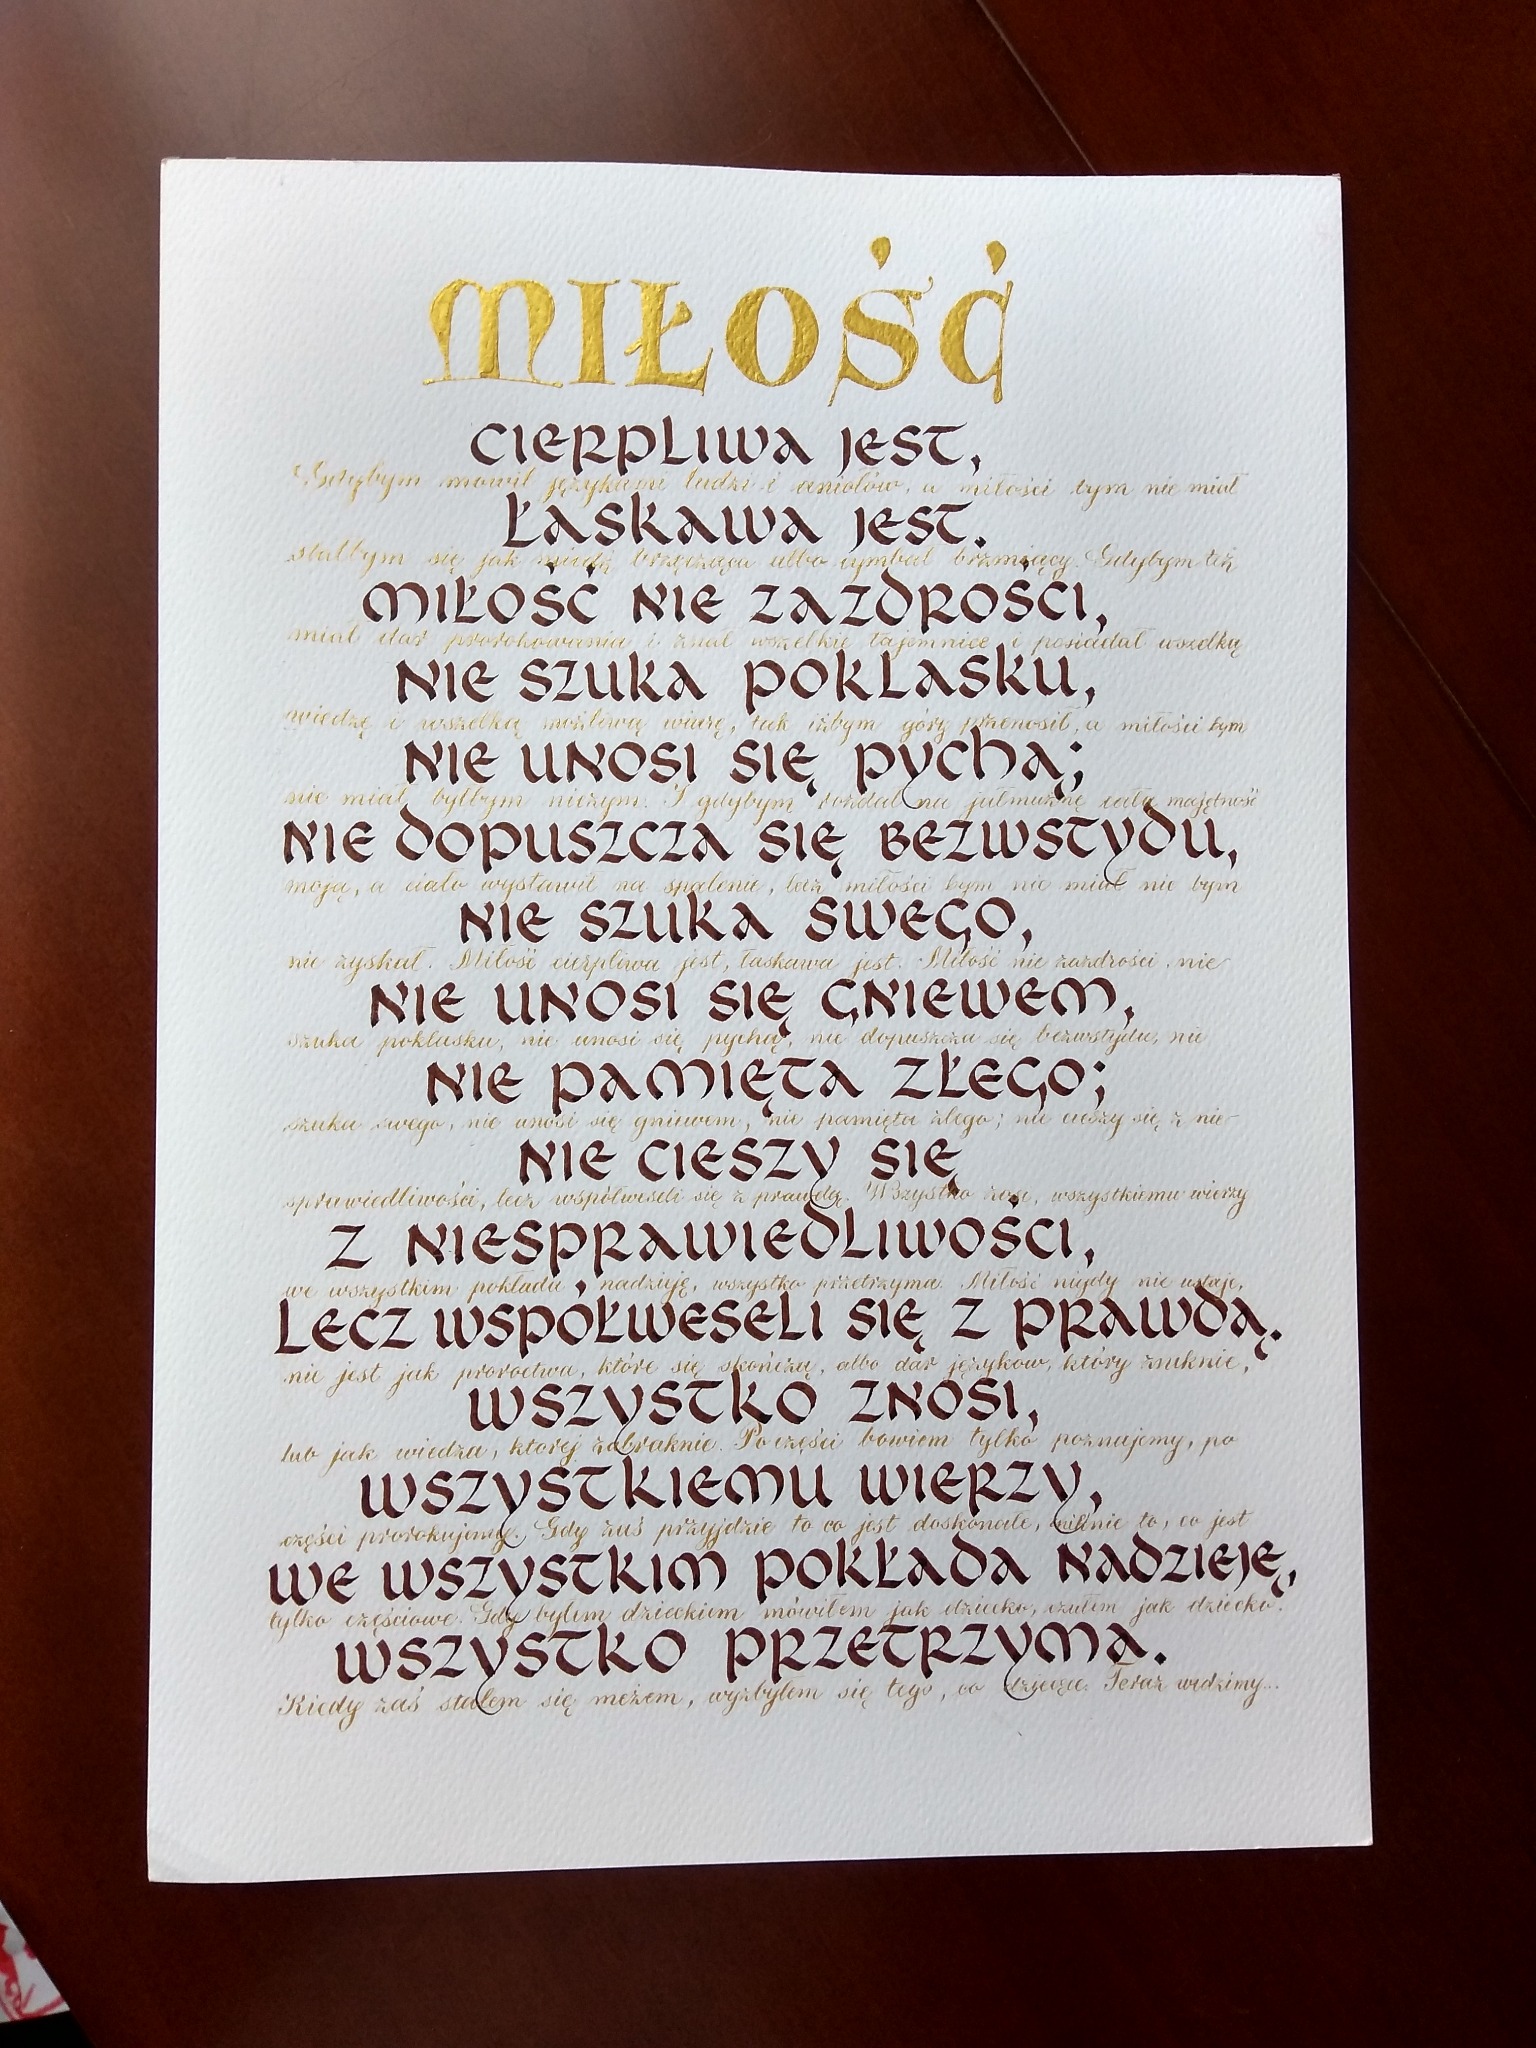 MIŁOŚĆ
CIERPLIWA JEST,
Gdybym mówił językami ludzi i aniołów, a miłości bym nie miał
ŁASKAWA JEST.
stałbym się jak miedź brzęcząca albo cymbał brzmiący. Gdybym też
MIŁOŚĆ NIE ZAZDROŚCI,
miał dar prorokowania i znał wszelkie tajemnice i posiadał wszelką
NIE SZUKA POKLASKU,
wiedzę i wszelką możliwą wiarę, tak iżbym góry przenosił, a miłości bym
NIE UNOSI SIĘ PYCHĄ;
nie miał, byłbym niczym. I gdybym rozdał na jałmużnę całą majętność
NIE DOPUSZCZA SIĘ BEZWSTYDU,
moją, a ciało wystawił na spalenie, lecz miłości bym nie miał nic bym
NIE SZUKA SWEGO,
nie zyskał. Miłość cierpliwa jest, łaskawa jest. Miłość nie zazdrości, nie
NIE UNOSI SIĘ GNIEWEM,
szuka poklasku, nie unosi się pychą, nie dopuszcza się bezwstydu, nie
NIE PAMIĘTA ZŁEGO;
szuka swego, nie unosi się gniewem, nie pamięta złego; nie cieszy się z nie-
NIE CIESZY SIĘ
sprawiedliwości, lecz współweseli się z prawdą. Wszystko znosi, wszystkiemu wierzy
Z NIESPRAWIEDLIWOŚCI,
we wszystkim pokłada nadzieję, wszystko przetrzyma. Miłość nigdy nie ustaje,
LECZ WSPÓŁWESELI SIĘ Z PRAWDĄ.
nie jest jak proroctwa, które się skończą, albo dar języków, który zniknie,
WSZYSTKO ZNOSI,
lub jak wiedza, której zabraknie. Po części bowiem tylko poznajemy, po
WSZYSTKIEMU WIERZY,
części prorokujemy. Gdy zaś przyjdzie to co jest doskonałe, zniknie to, co jest
WE WSZYSTKIM POKŁADA NADZIEJĘ,
tylko częściowe. Gdy byłem dzieckiem mówiłem jak dziecko, czułem jak dziecko.
WSZYSTKO PRZETRZYMA.
Kiedy zaś stałem się mężem, wyzbyłem się tego, co dziecięce. Teraz widzimy...